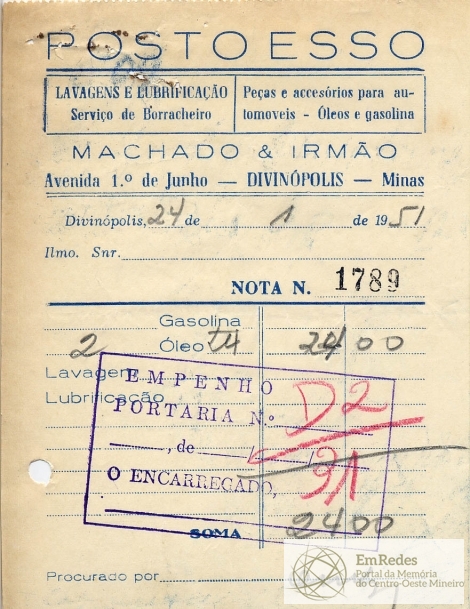 POSTO ESSO
LAVAGENS E LUBRIFICAÇÃO
Serviço de Borracheiro
Peças e accesórios para au-
tomoveis - Óleos e gasolina
MACHADO & IRMÃO
Avenida 1.º de Junho — DIVINÓPOLIS — Minas
Divinópolis, 24 de 1 de 1951
Ilmo. Snr.
NOTA N. 1789
Gasolina
2 Óleo 24 00
Lavagem
Lubrificação
EMPENHO
PORTARIA N.º D2
, de
91
O ENCARREGADO,
SOMA 2400
Procurado por
EmRedes
Portal da Memória
do Centro-Oeste Mineiro